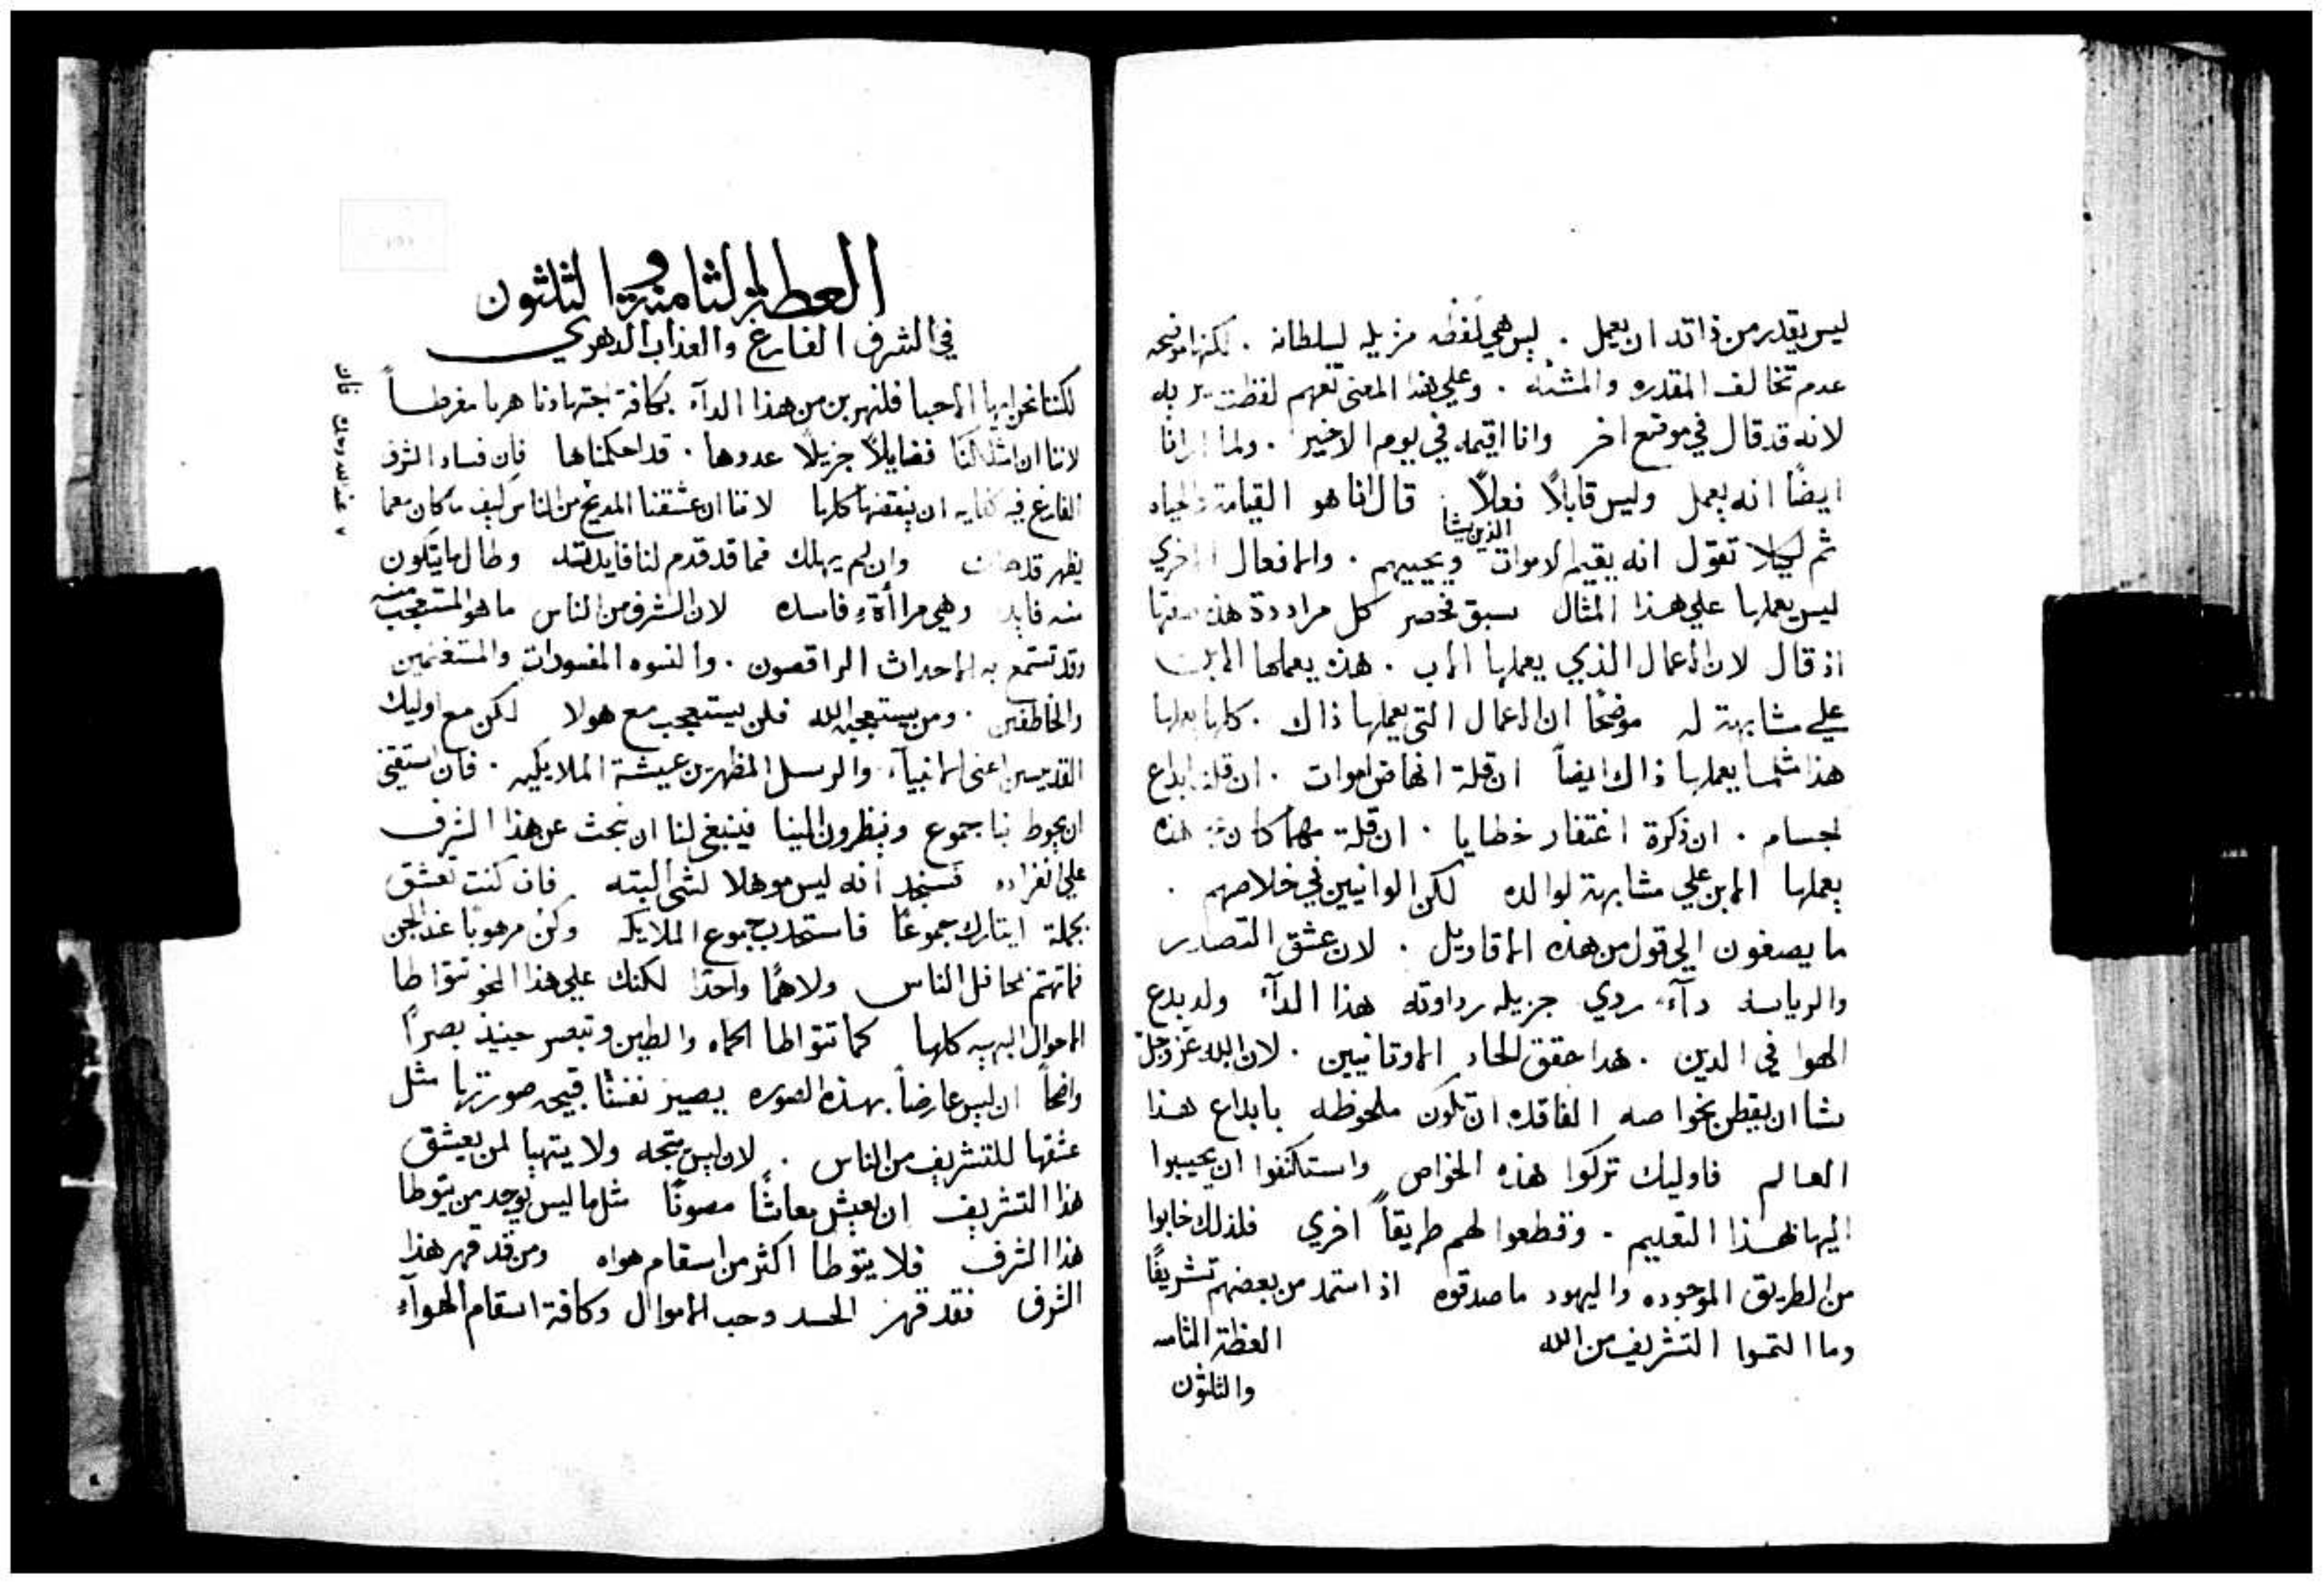 ليس يقدر من ذاته ان يعمل . ليس هي لفظه مزيله لسلطانه . لكنها موضحه
عدم تخالف المقدره والمشئه . وعلي هذا المعني تفهم لفظت
لانه قد قال في موضع اخر وانا اقيمه في يوم الاخير . ولما ارانا
ايضًا انه يعمل وليس قابلاً فعلاً . قال انا هو القيامة والحياه
ثم لكيلا تقول انه يقيم الاموات الذين يشا ويحييهم . والافعال الاخري
ليس يعملها علي هذا المثال سبق فحصر كل مراددة هذه
اذ قال لان الاعمال الذي يعملها الاب . هذه يعملها الابن
علي مشابهة له موضحًا ان الاعمال التي يعملها ذاك . كلها يعملها
هذا مثلما يعملها ذاك ايضاً ان قلة انهاض اموات . ان قلة ابداع
اجسام . ان ذكرة اغتفار خطايا . ان قلة مهما كان هذه
يعملها الابن علي مشابهة لوالده لكن الوانيين في خلاصهم .
ما يصغون الي قول من هذه الاقاويل . لان عشق التصدر
والرياسه دآء ردي جزيله رداوته هذا الدآء ولد بدع
الهوا في الدين . هذا حقق الحاد الاوثانيين . لان الله عز وجل
شا ان يفطن بخواصه الفاقده ان تكون ملحوظه بابداع هذا
العالم فاوليك تركوا هذه الخواص واستنكفوا ان يجيبوا
اليها لهذا التعليم . وقطعوا لهم طريقاً اخري فلذلك خابوا
من الطريق الموجوده واليهود ما صدقوه اذ استمد من بعضهم تشريفًا
وما التمسوا التشريف من الله
العظة الثامنه
والثلثون
العظة الثامنة والثلثون
في الشرف الفارغ والعذاب الدهري
لكننا نحن ايها الاحبا فلنهربن من هذا الدآء بكافة اجتهادنا هربا مفرطاً
لاننا ان امتلكنا فضايلاً جزيلاً عددها . قد احكمناها فان فساد الشرف
الفارغ فيه كفايه ان ينقضها كلها لاننا ان عشقنا المديح من الناس كيف ما كان معما
يظهر قد وان لم يهلك فما قد قدم لنا فايدته وطال ما يتكون
منه فايد وهي مراأة فاسده لان الشرف من الناس ما هو المستعجب منه
وقد تستمع به الاحداث الراقصون . والنسوه المفسودات والمستغنمين
والخاطفين . ومن يستعجبه الله فلن يستعجب مع هولا لكن مع اوليك
القديسين اعني الانبيآء والرسل المظهرين عيشة الملايكه . فان
ان يحوط بنا جموع وينظرون الينا فينبغي لنا ان نبحث عن هذا الشرف
علي انفراده فسنجد انه ليس موهلا لشي البته فان كنت تعشق
بجملة ايثارك جموعًا فاستجذب جموع الملايكه وكن مرهوبًا عند الجن
فما تهتم بمحافل الناس ولا همًا واحدًا لكنك علي هذا النحو تتواطا
الاحوال البهيه كلها كما تتواطا الحماه والطين وتبصر حينيذ بصرًا
واضحًا ان ليس عارضاً بهذه الصوره يصير نفسنا قبيحه صورتها مثل
عشقها للتشريف من الناس . لان ليس يتجه ولا يتهيا لمن يعشق
هذا التشريف ان يعيش معاشًا مصونًا مثل ما ليس يوجد من يتوطا
هذا الشرف فلا يتوطا اكثر من اسقام هواه ومن قد قهر هذا
الشرف فقد قهر الحسد وحب الاموال وكافة اسقام الهوآء